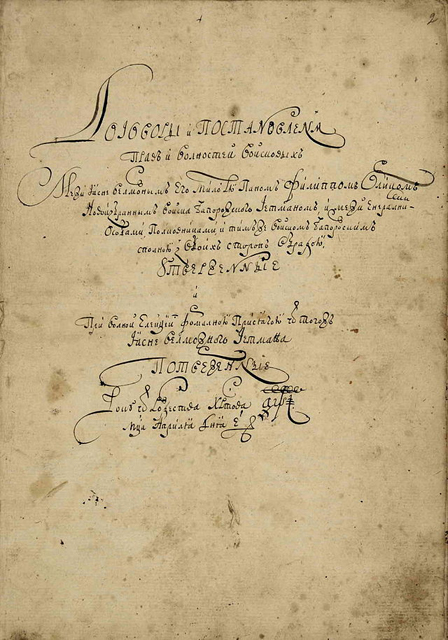 Договоры и Постановленѧ
Правъ и волностей войсковыхъ
Межи Ясне велможнымъ Его Милостю Паномъ Филиппомъ Орликомъ
Новоизбраннымъ войска Запорозского Гетманомъ и межи Енералны-
Особами Полковниками и тимъ же войскомъ Запорозскимъ
сполною з обоихъ сторонъ обрадою
Утверженные
и
При волной Елекцыи формалною Присягою ѿ тогожъ
Ясне велможного Гетмана
Потверженные
Року ѿ Рождества Христова ҂аѱі
мца Априля дня е
2